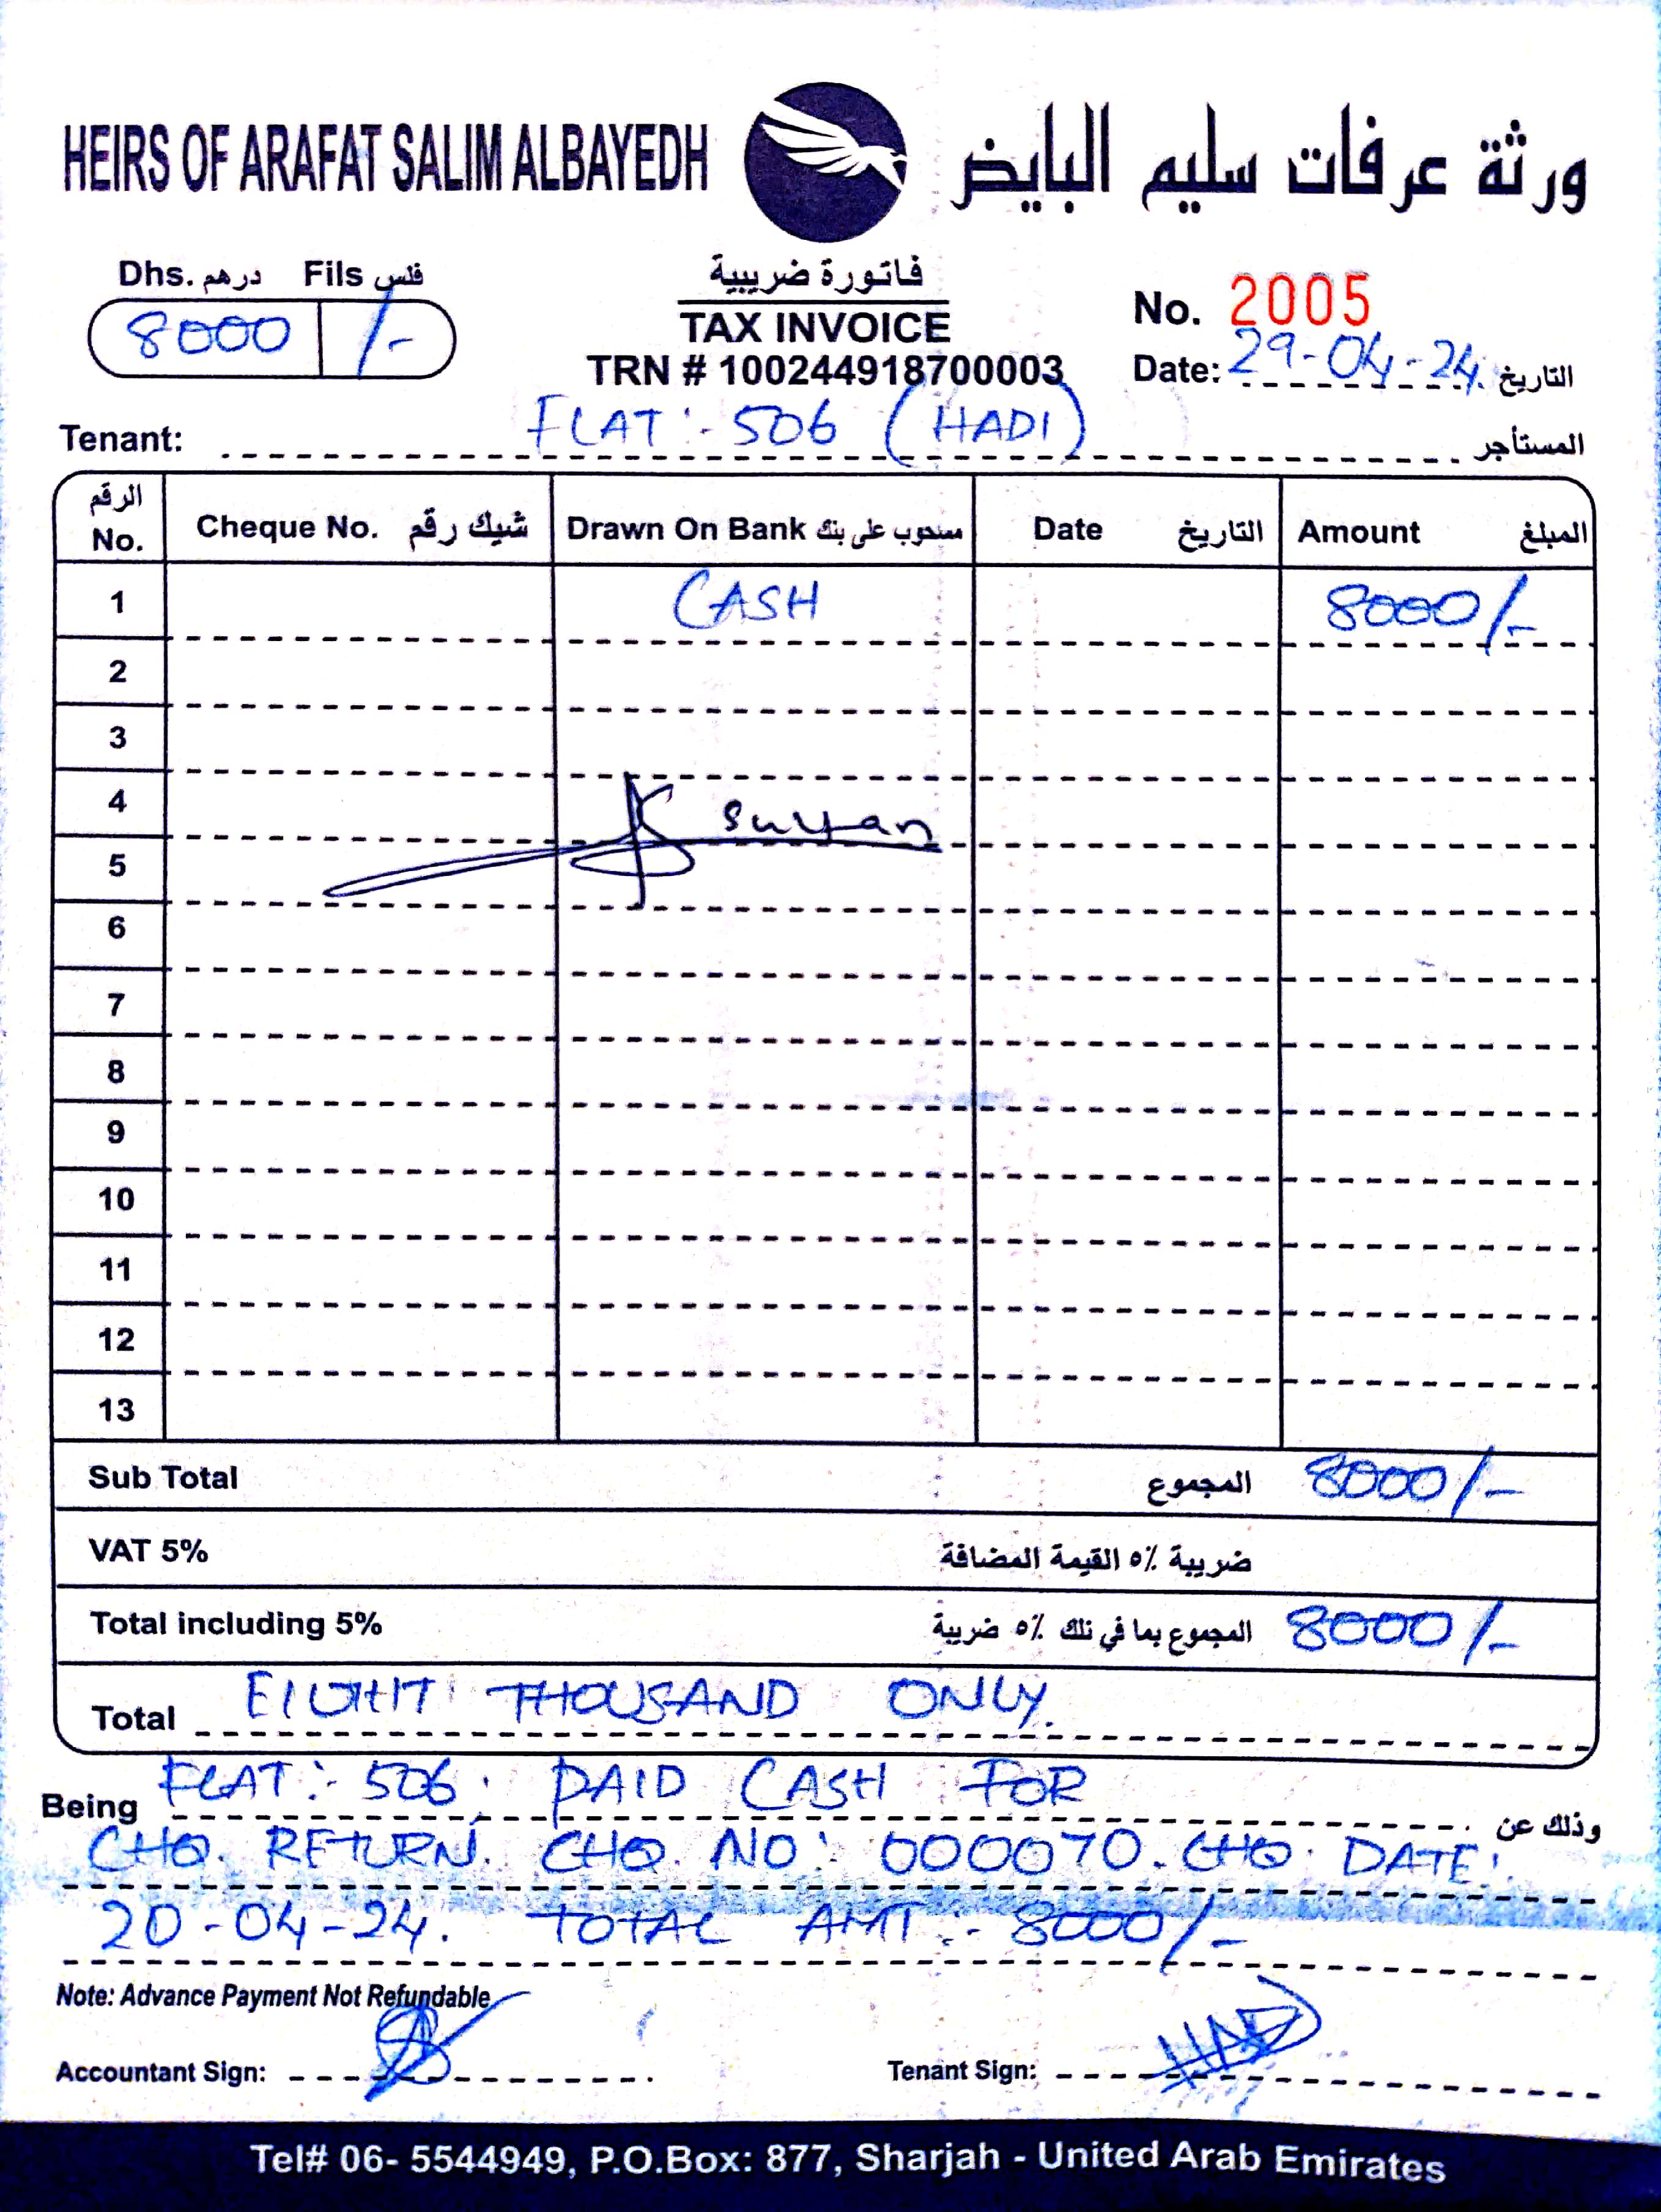 HEIRS OF ARAFAT SALIM ALBAYEDH ورثة عرفات سليم البايض
Dhs. درهم Fils فلس
8000 /-
فاتورة ضريبية
TAX INVOICE
TRN # 100244918700003
No. 2005
Date: 29-04-24 التاريخ
Tenant: FLAT:- 506 (HADI) المستأجر
الرقم No. Cheque No. شيك رقم Drawn On Bank مسحوب على بنك Date التاريخ Amount المبلغ
1 CASH 8000/-
2
3
4 Sultan
5
6
7
8
9
10
11
12
13
Sub Total المجموع 8000/-
VAT 5% ضريبة ٥٪ القيمة المضافة
Total including 5% المجموع بما في تلك ٥٪ ضريبة 8000/-
Total EIGHT THOUSAND ONLY.
Being FLAT:- 506, PAID CASH FOR وذلك عن
CHQ. RETURN. CHQ. NO: 000070. CHQ. DATE:
20-04-24. TOTAL AMT:- 8000/-
Note: Advance Payment Not Refundable
Accountant Sign: Tenant Sign: HADI
Tel# 06- 5544949, P.O.Box: 877, Sharjah - United Arab Emirates